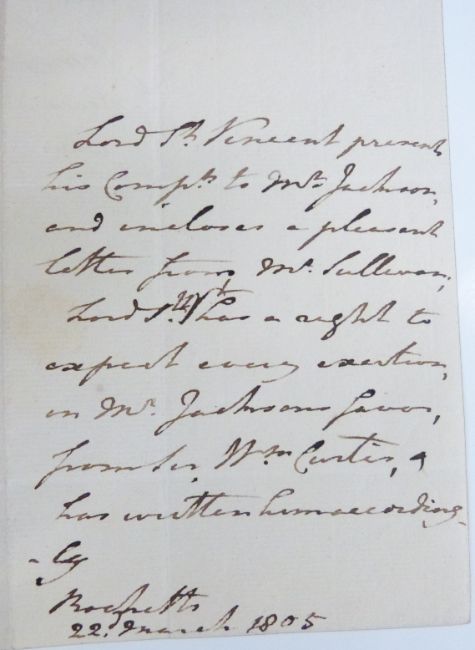 Lord St. Vincent presents
his Compts. to Mr. Jackson,
and incloses a pleasant
letter from Mr. Sullivan;
Lord St. V. has a right to
expect every exertion,
in Mr. Jacksons favor,
from Sir Wm. Curtis, &
has written him according-
-ly
Rochetts
22. March 1805